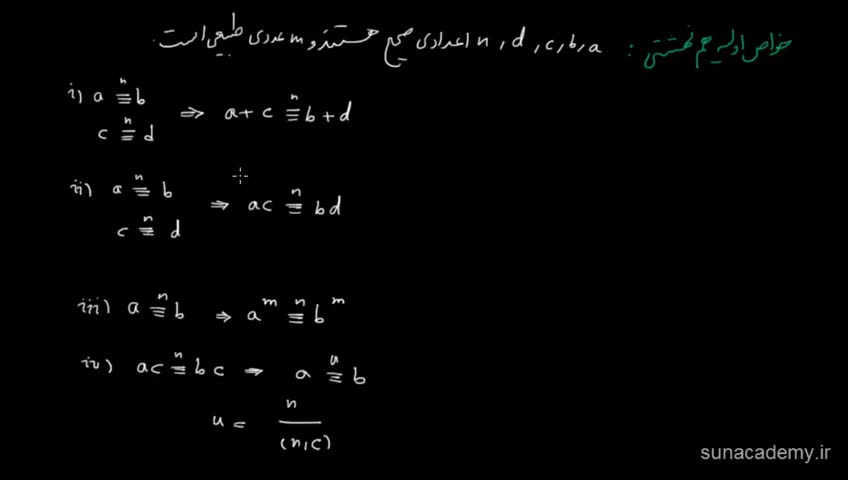 خواص اولیه هم نهشتی : a , b , c , d , n اعدادی صحیح هستند و m عددی طبیعی است.
i) a ≡ⁿ b
c ≡ⁿ d ⇒ a + c ≡ⁿ b + d
ii) a ≡ⁿ b
c ≡ⁿ d ⇒ ac ≡ⁿ bd
iii) a ≡ⁿ b ⇒ a^m ≡ⁿ b^m
iv) ac ≡ⁿ bc ⇒ a ≡ᵘ b
u = n / (n,c)
sunacademy.ir